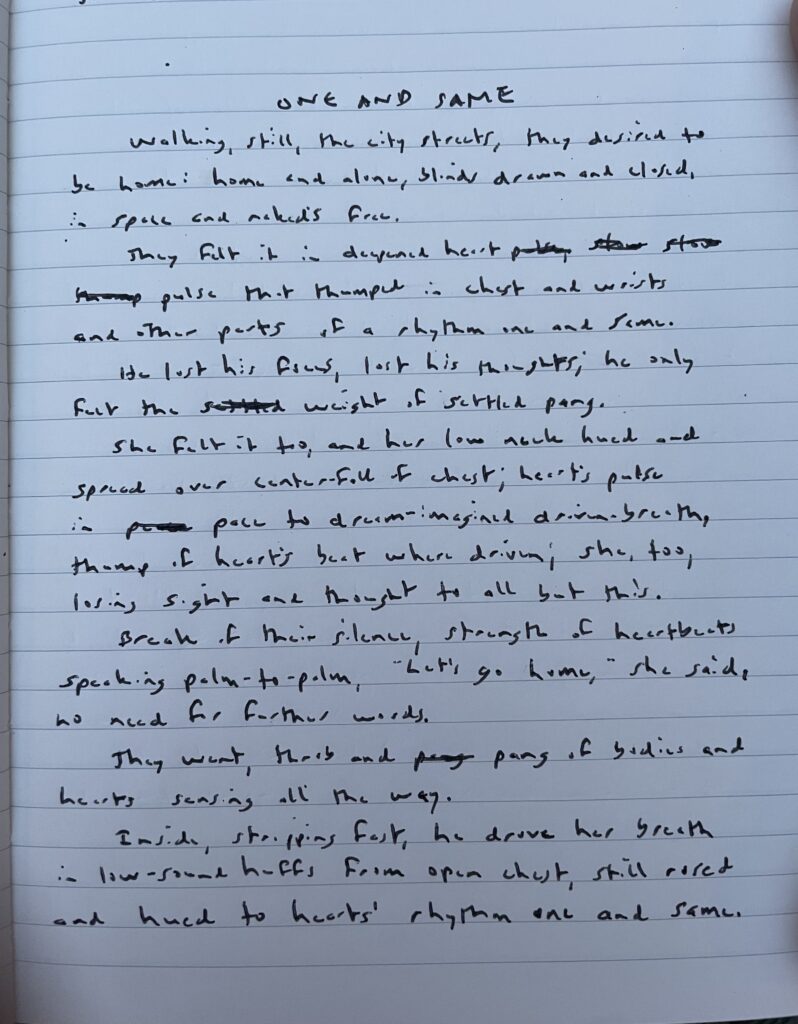 ONE AND SAME
Walking, still, the city streets, they desired to
be home: home and alone, blinds drawn and closed,
in space and naked's free.
They felt it in deepened heart
pulse that thumped in chest and wrists
and other parts of a rhythm one and same.
He lost his focus, lost his thoughts; he only
felt the settled weight of settled pang.
She felt it too, and her low neck hued and
spread over center-fall of chest; heart's pulse
in pace to dream-imagined driven-breath,
thump of heart's beat where driven; she, too,
losing sight and thought to all but this.
Break of their silence, strength of heartbeats
speaking palm-to-palm, "Let's go home," she said,
no need for further words.
They went, throb and pang of bodies and
hearts sensing all the way.
Inside, stripping fast, he drove her breath
in low-sound huffs from open chest, still rosed
and hued to hearts' rhythm one and same.